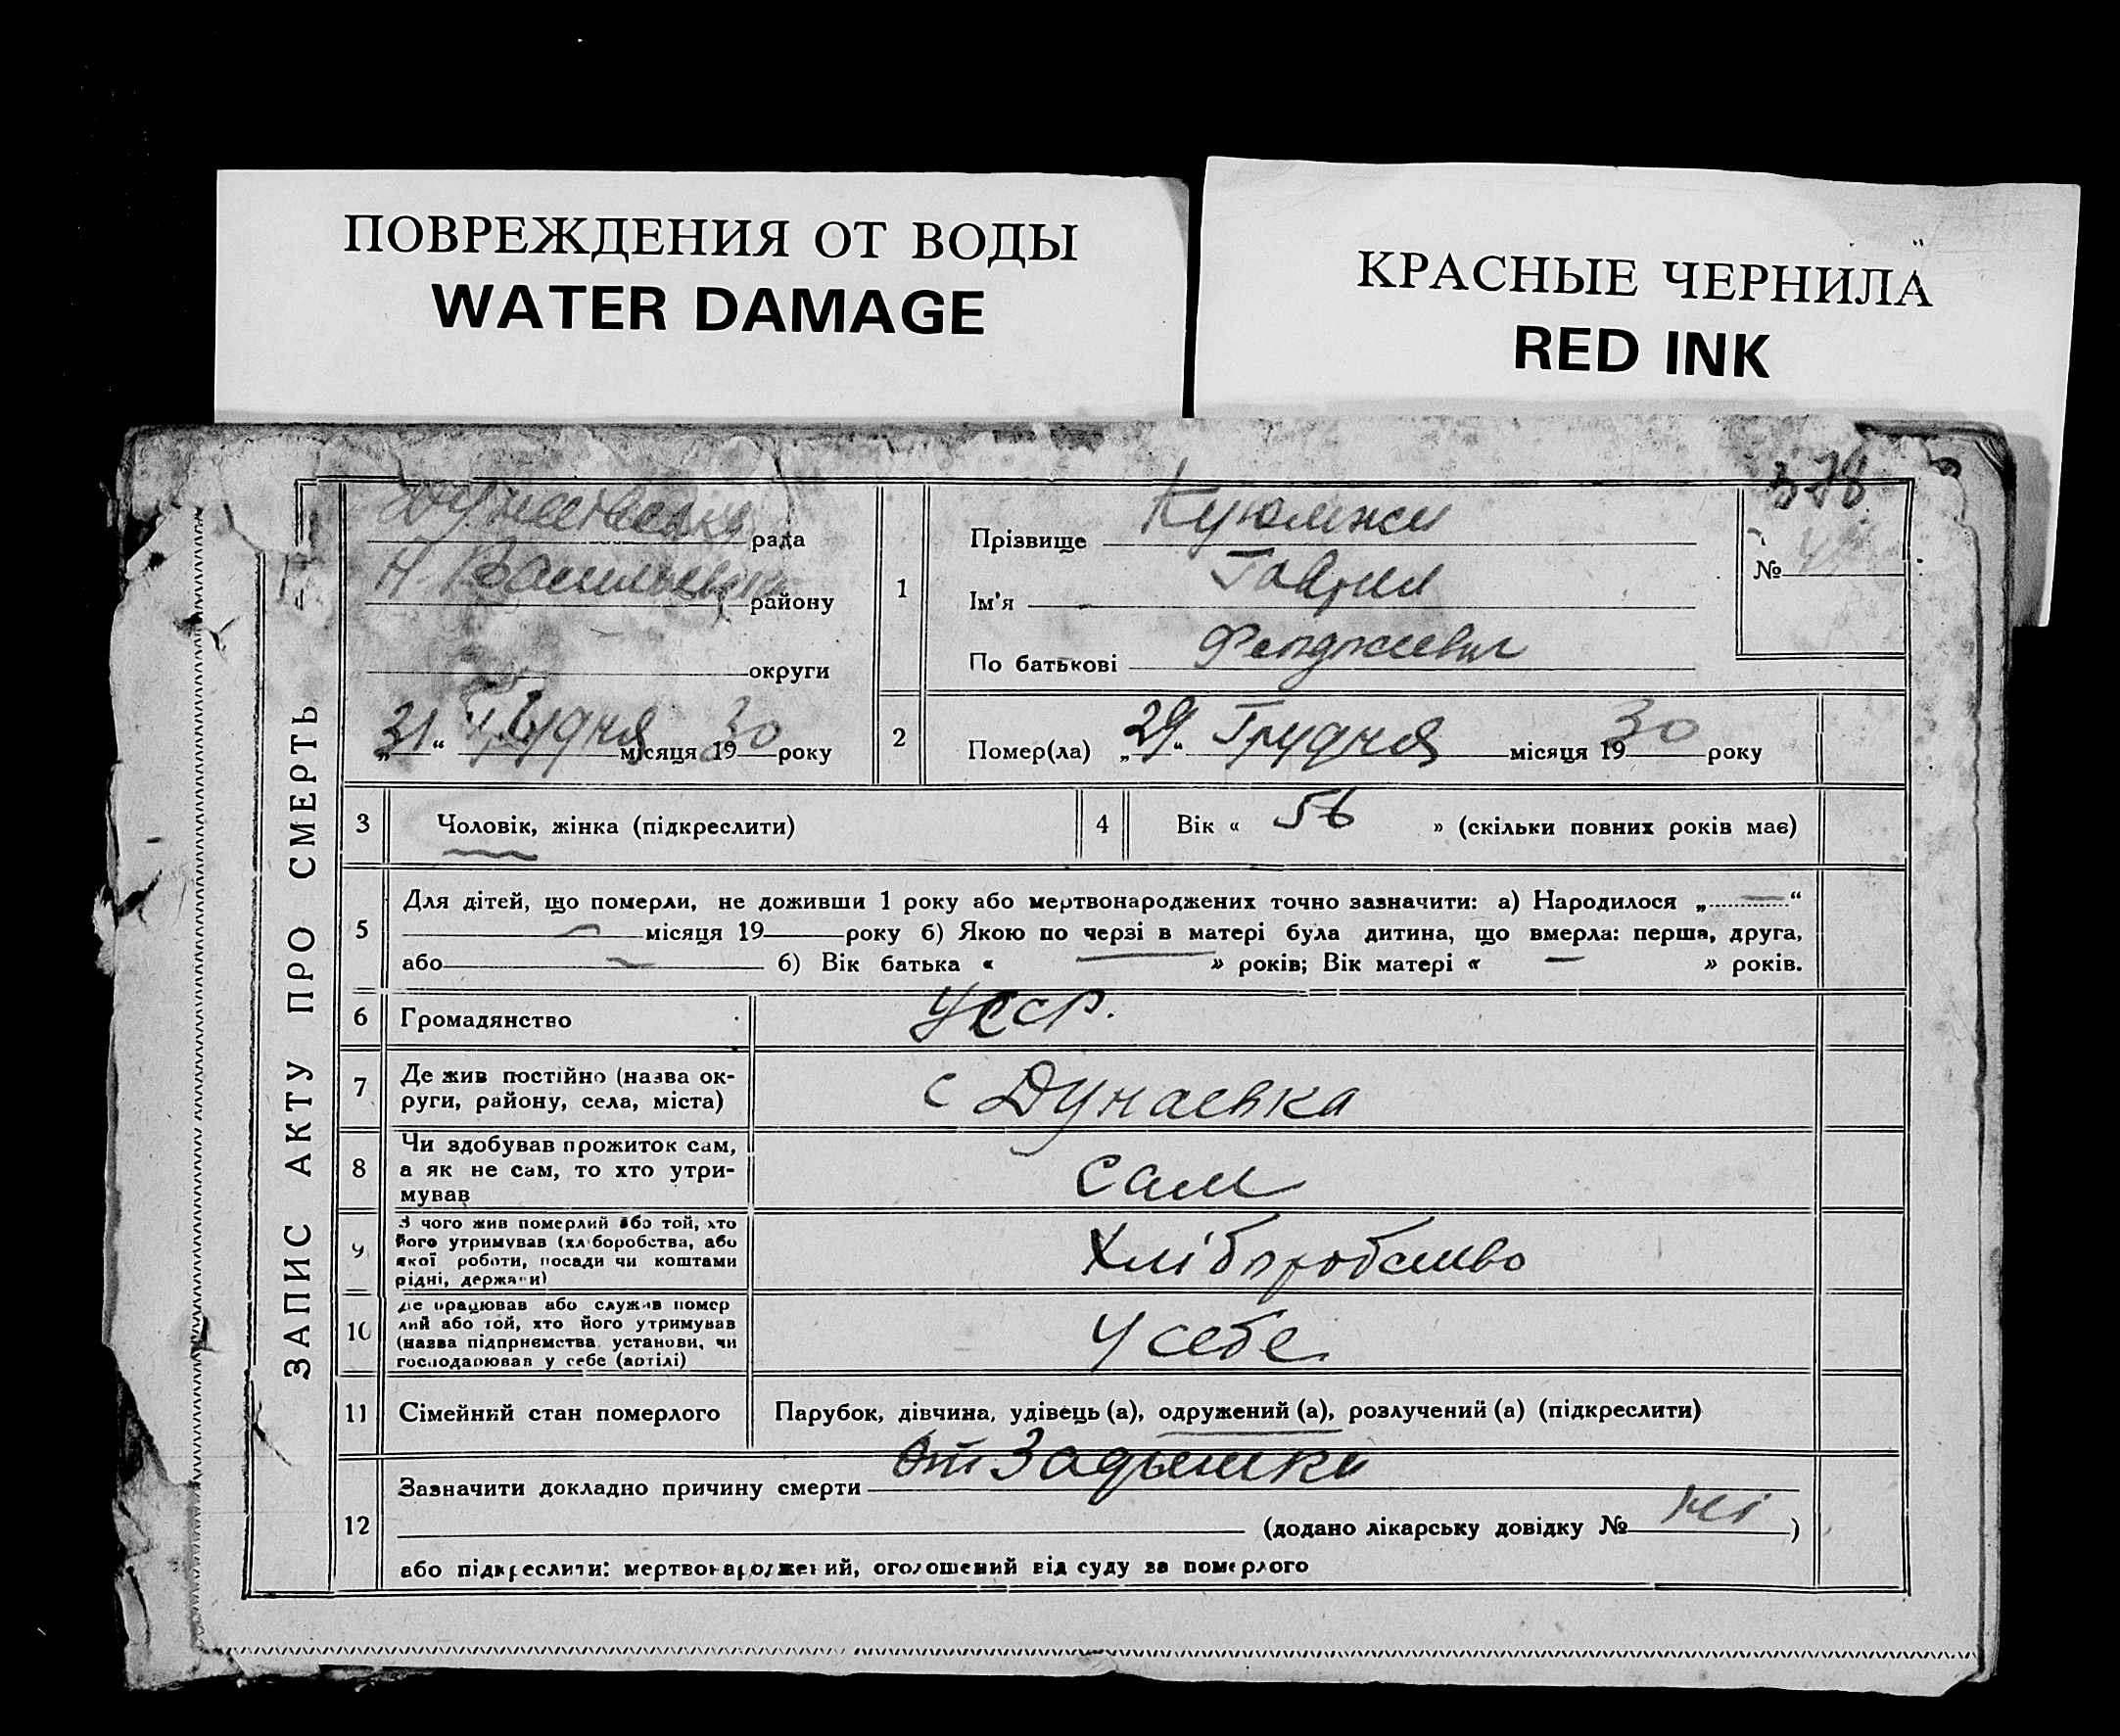 ПОВРЕЖДЕНИЯ ОТ ВОДЫ
WATER DAMAGE
КРАСНЫЕ ЧЕРНИЛА
RED INK
378
ЗАПИС АКТУ ПРО СМЕРТЬ
рада
району
округи
„31“ Грудня місяця 1930 року
1
Прізвище Куюмжи
Ім'я Гаврил
По батькові
№
2
Помер(ла) „29“ Грудня місяця 1930 року
3 Чоловік, жінка (підкреслити)
4 Вік « 56 » (скільки повних років має)
5 Для дітей, що померли, не доживши 1 року або мертвонароджених точно зазначити: а) Народилося „—“
— місяця 19 року б) Якою по черзі в матері була дитина, що вмерла: перша, друга,
або — б) Вік батька « — » років; Вік матері « — » років.
6 Громадянство УССР.
7 Де жив постійно (назва ок-
руги, району, села, міста)
с Дунаевка
8 Чи здобував прожиток сам,
а як не сам, то хто утри-
мував
Сам
9 З чого жив померлий або той, хто
його утримував (хліборобства, або
якої роботи, посади чи коштами
рідні, держави)
Хліборобство
10 Де працював або служив помер
лий або той, хто його утримував
(назва підприємства, установи, чи
господарював у себе (артілі)
У себе
11 Сімейний стан померлого Парубок, дівчина, удівець (а), одружений (а), розлучений (а) (підкреслити)
12 Зазначити докладно причину смерти От Задышки
(додано лікарську довідку № ні)
або підкреслити: мертвонароджений, оголошений від суду за померлого